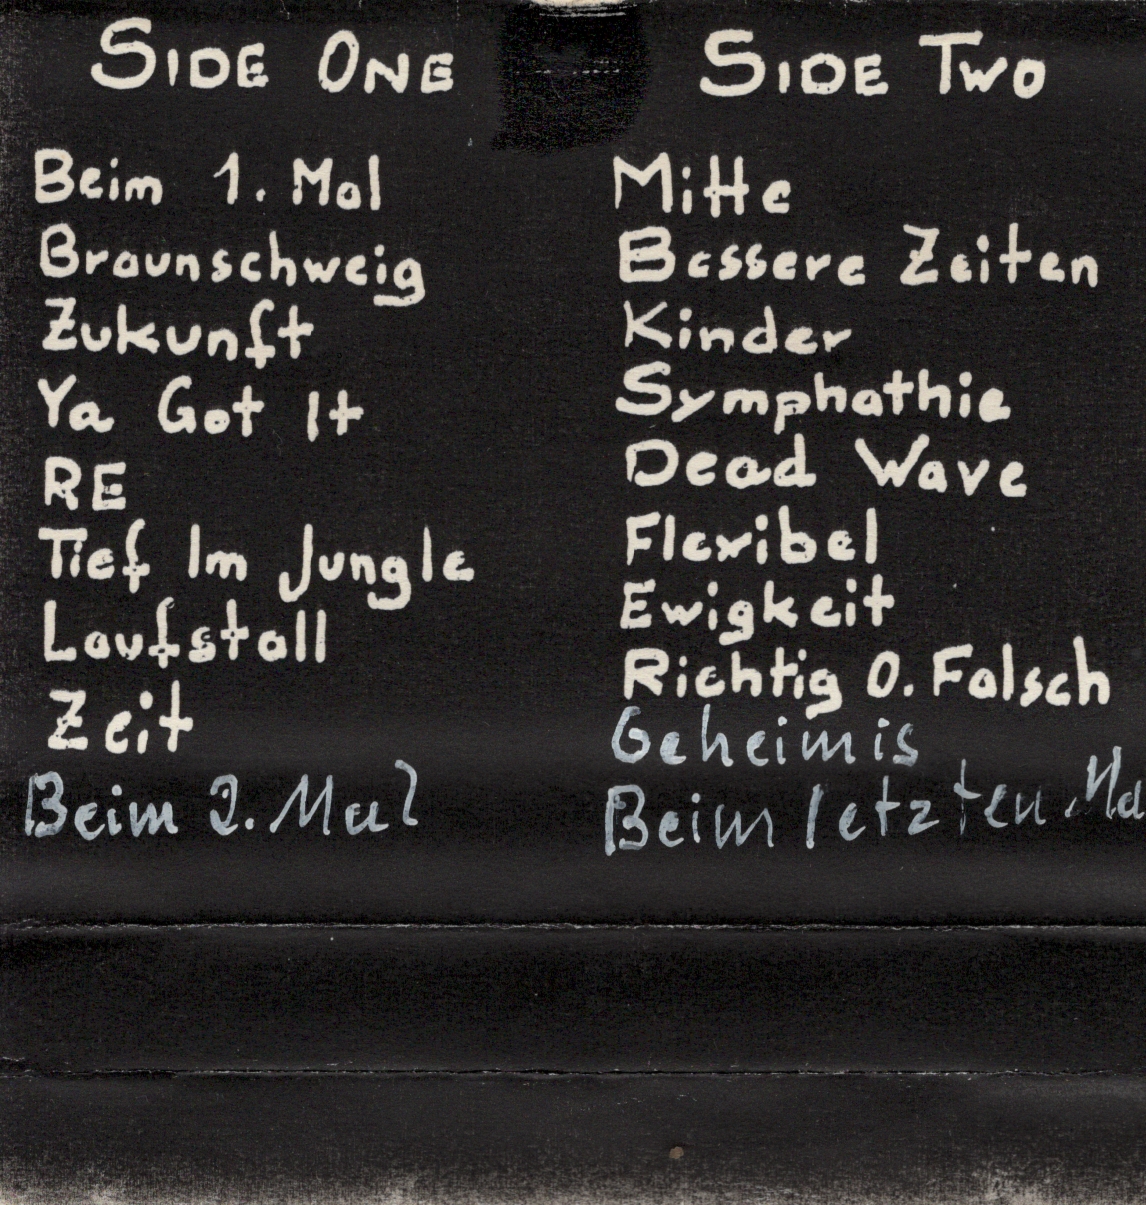 SIDE ONE
Beim 1. Mal
Braunschweig
Zukunft
Ya Got It
RE
Tief Im Jungle
Laufstall
Zeit
Beim 2. Mal
SIDE TWO
Mitte
Bessere Zeiten
Kinder
Symphathie
Dead Wave
Flexibel
Ewigkeit
Richtig O. Falsch
Geheimis
Beim letzten Ma